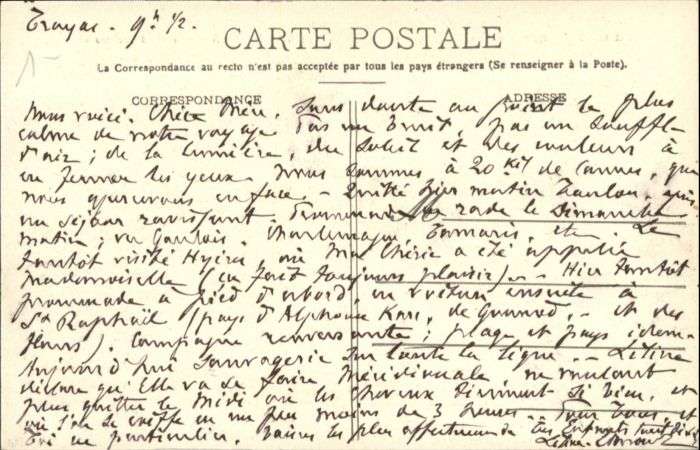 Trayas - 9h 1/2.
CARTE POSTALE
La Correspondance au recto n'est pas acceptée par tous les pays étrangers (Se renseigner à la Poste).
CORRESPONDANCE
ADRESSE
Nous voici, Chère Mère, sans doute au point le plus
calme de notre voyage Pas un bruit, pas un souffle
d'air; de la lumière, du Soleil et des couleurs à
en fermer les yeux. Nous sommes à 20 kil de Cannes, que
nous apercevons en face - Quitté hier matin Toulon, après
un séjour ravissant. Promenade en rade le Dimanche
matin; vu Gaulois, Charlemagne, Tamaris, etc. Le
tantôt visité Hyères, où Ma Chérie a été appelée
Mademoiselle (ça fait toujours plaisir). - Hier tantôt
promenade à pied d'abord, en voiture ensuite à
St Raphaël (pays d'Alphonse Karr, de Gounod, - et des
fleurs). Campagne renversante; plage et pays idem.
Aujourd'hui Sauvagerie sur toute la ligne. -
déclare qu'Elle va se faire Méridionale ne voulant
plus quitter le Midi où les cheveux diminuent si bien, et
où l'on se coiffe en un peu moins de 3 heures. - Pour tous, et
Toi en particulier, baisers les plus affectueux de Tes Enfants